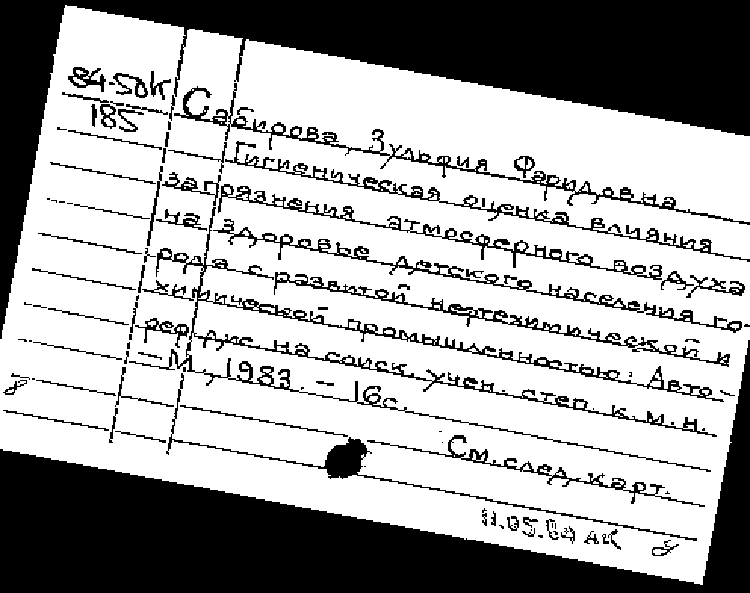 84-50К
185
Сабирова, Зульфия Фаридовна.
Гигиеническая оценка влияния
загрязнения атмосферного воздуха
на здоровье детского населения го-
рода с развитой нефтехимической и
химической промышленностью: Авто-
реф. дис. на соиск. учен. степ. к. м. н.
– М., 1983. – 16с.
См. след. карт.
8
11.05.84 АК 8